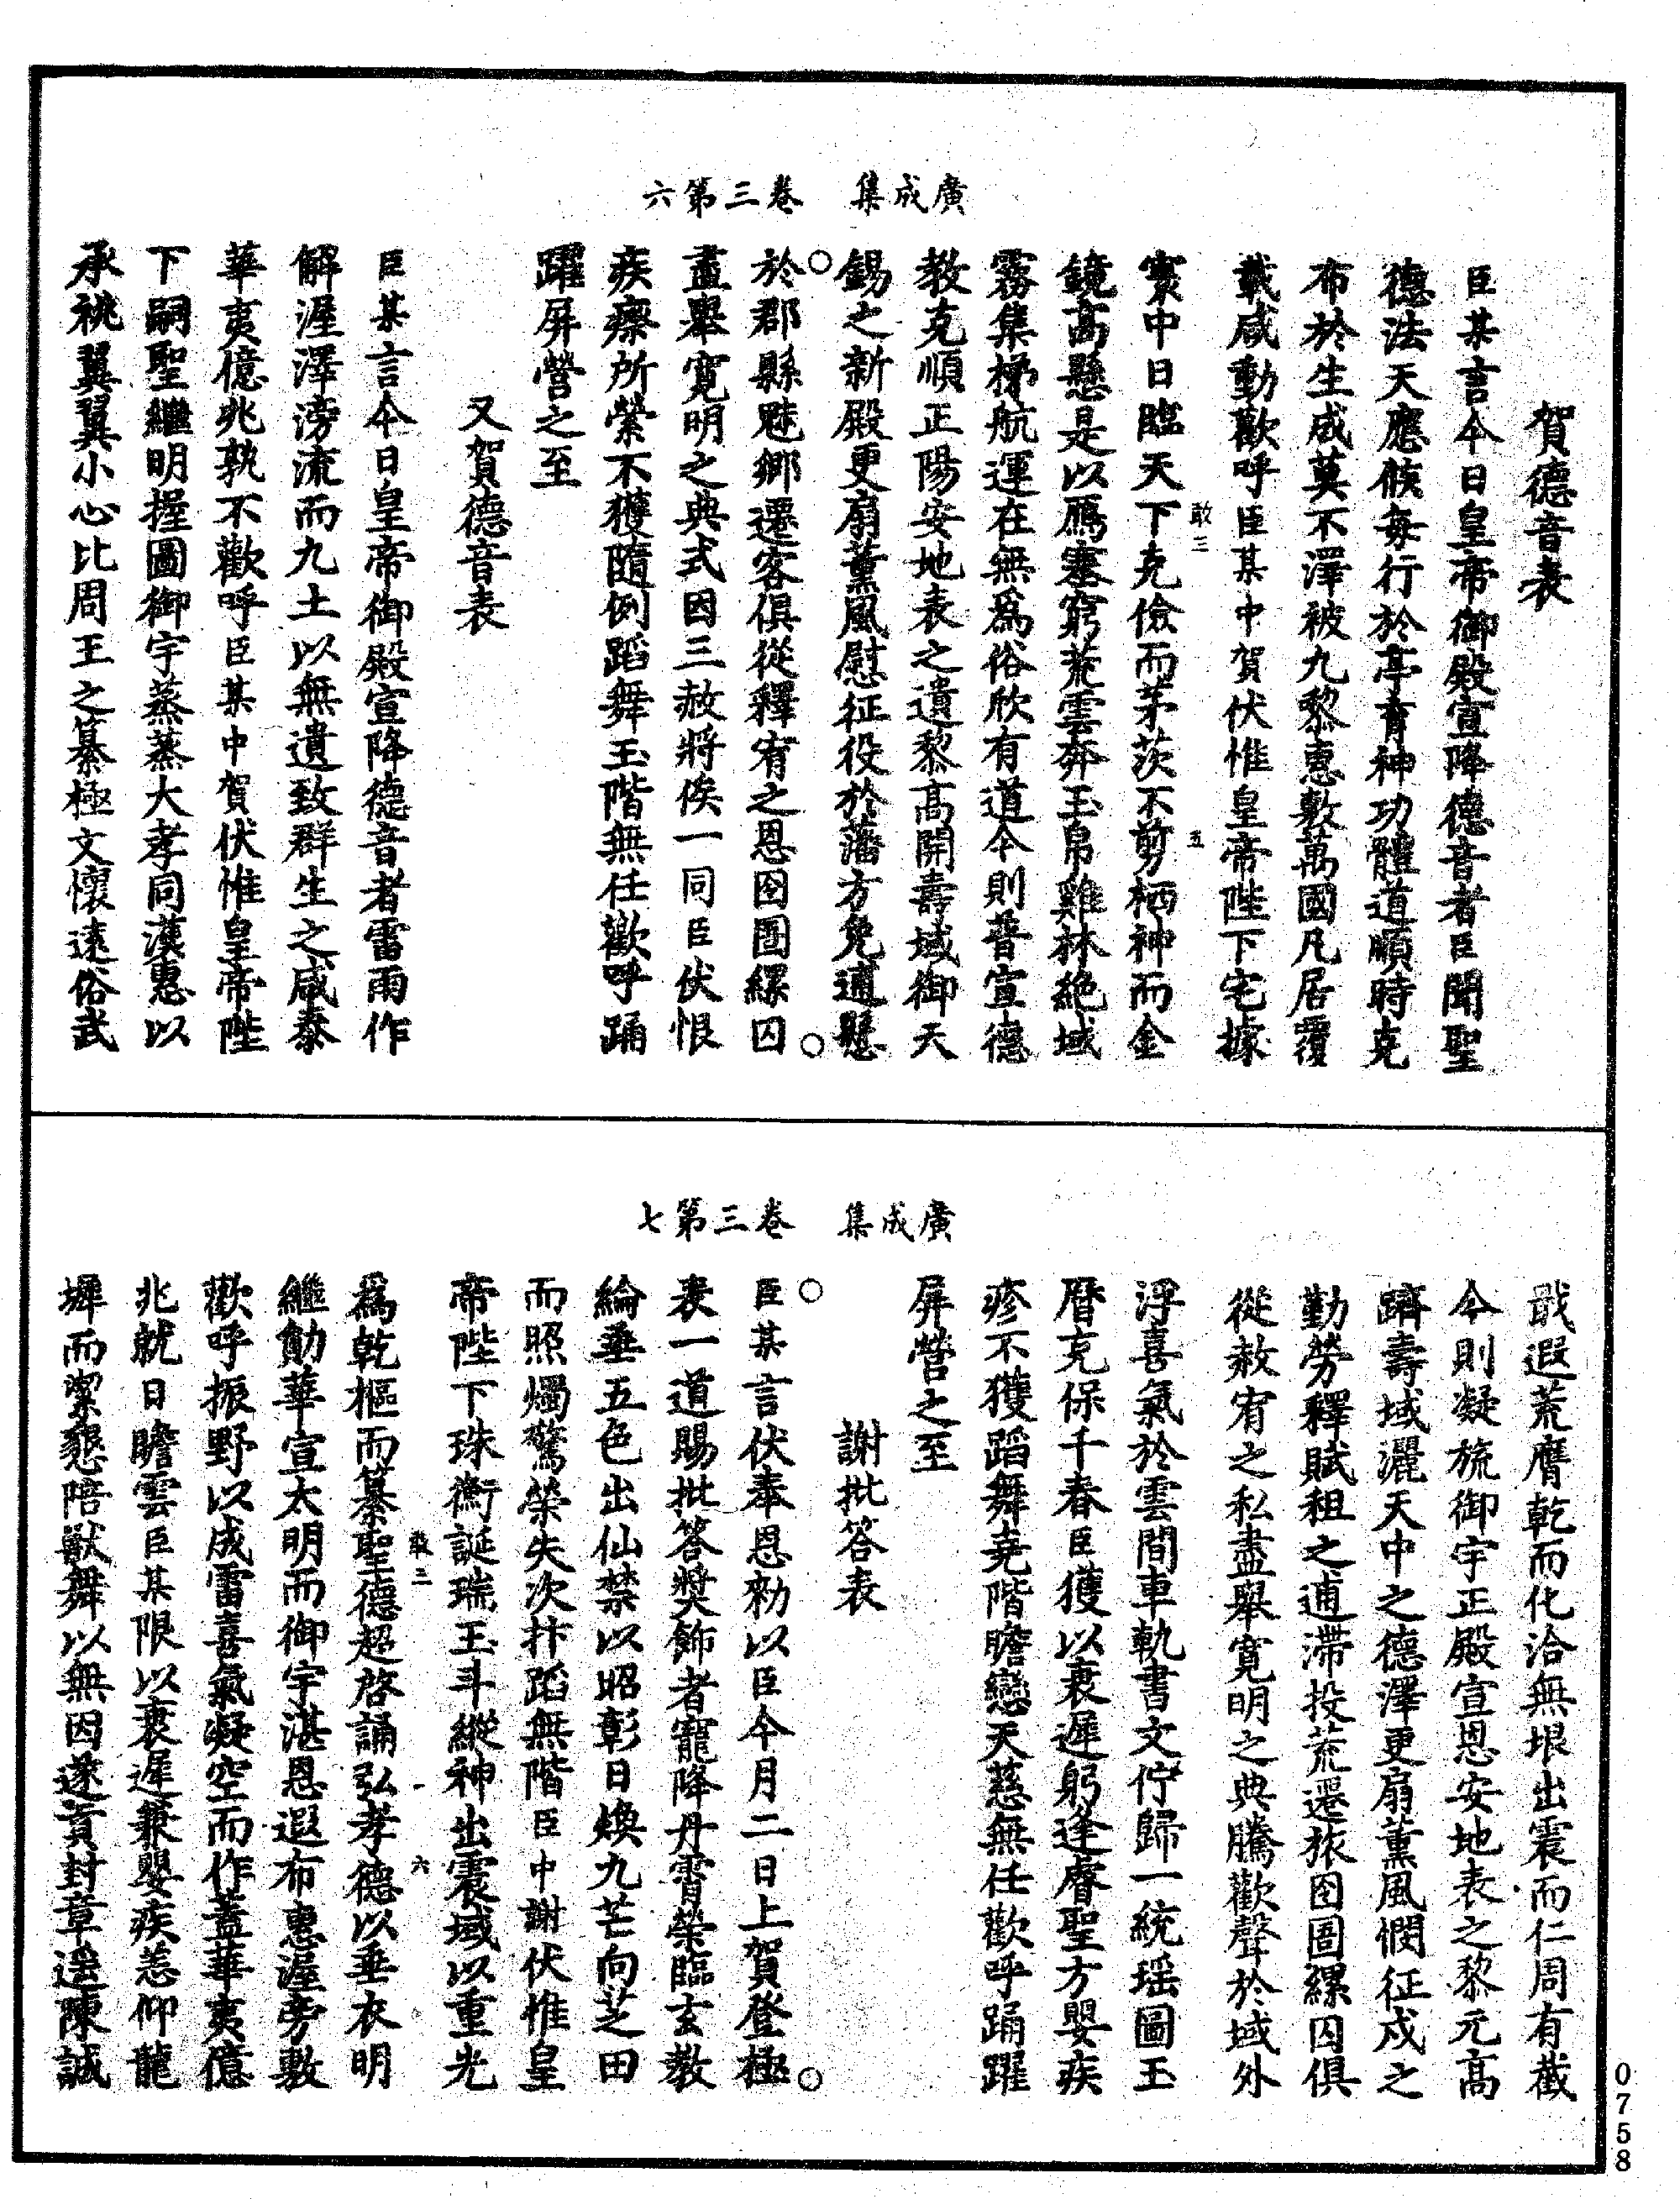 廣成集　卷三第六
賀德音表
臣某言今日皇帝御殿宣降德音者臣聞聖
德法天應候每行於亭育神功體道順時克
布於生成莫不澤被九黎惠敷萬國凡居覆
載咸動歡呼臣某中賀伏惟皇帝陛下宅據
寰中日臨天下克儉而茅茨不剪栖神而金
敢三　五
鏡高懸是以鴈塞窮荒雲奔玉帛雞林絶域
霧集梯航運在無爲俗欣有道今則普宣德
教克順正陽安地表之遺黎高開壽域御天
錫之新殿更扇薰風慰征役於藩方免逋懸
於郡縣魅鄉遷客俱從釋宥之恩囹圄縲囚
盡舉寬明之典式因三赦將俟一同臣伏恨
疾瘵所縈不獲隨例蹈舞玉階無任歡呼踊
躍屏營之至
又賀德音表
臣某言今日皇帝御殿宣降德音者雷雨作
解渥澤滂流而九土以無遺致群生之咸泰
華夷億兆孰不歡呼臣某中賀伏惟皇帝陛
下嗣聖繼明握圖御宇蒸蒸大孝同漢惠以
承祧翼翼小心比周王之纂極文懷遠俗武
廣成集　卷三第七
戢遐荒膺乾而化洽無垠出震而仁周有截
今則凝旒御宇正殿宣恩安地表之黎元高
躋壽域灑天中之德澤更扇薰風憫征戍之
勤勞釋賦租之逋滯投荒遷旅囹圄縲囚俱
從赦宥之私盡舉寛明之典騰歡聲於域外
浮喜氣於雲間車軌書文佇歸一統瑶圖玉
曆克保千春臣獲以衰遲躬逢睿聖方嬰疾
疹不獲蹈舞堯階瞻戀天慈無任歡呼踊躍
屏營之至
謝批答表
臣某言伏奉恩勑以臣今月二日上賀登極
表一道賜批答奬飾者寵降丹霄榮臨玄教
綸垂五色出仙禁以昭彰日煥九芒向芝田
而照燭驚榮失次抃蹈無階臣中謝伏惟皇
帝陛下珠衡誕瑞玉斗縱神出震域以重光
敢三　六
爲乾樞而纂聖德超啓誦弘孝德以垂衣明
繼勛華宣太明而御宇湛恩遐布惠渥旁敷
歡呼振野以成雷喜氣凝空而作蓋華夷億
兆就日瞻雲臣某限以衰遲兼嬰疾恙仰龍
墀而潔懇陪獸舞以無因遂賫封章遥陳誠
0758